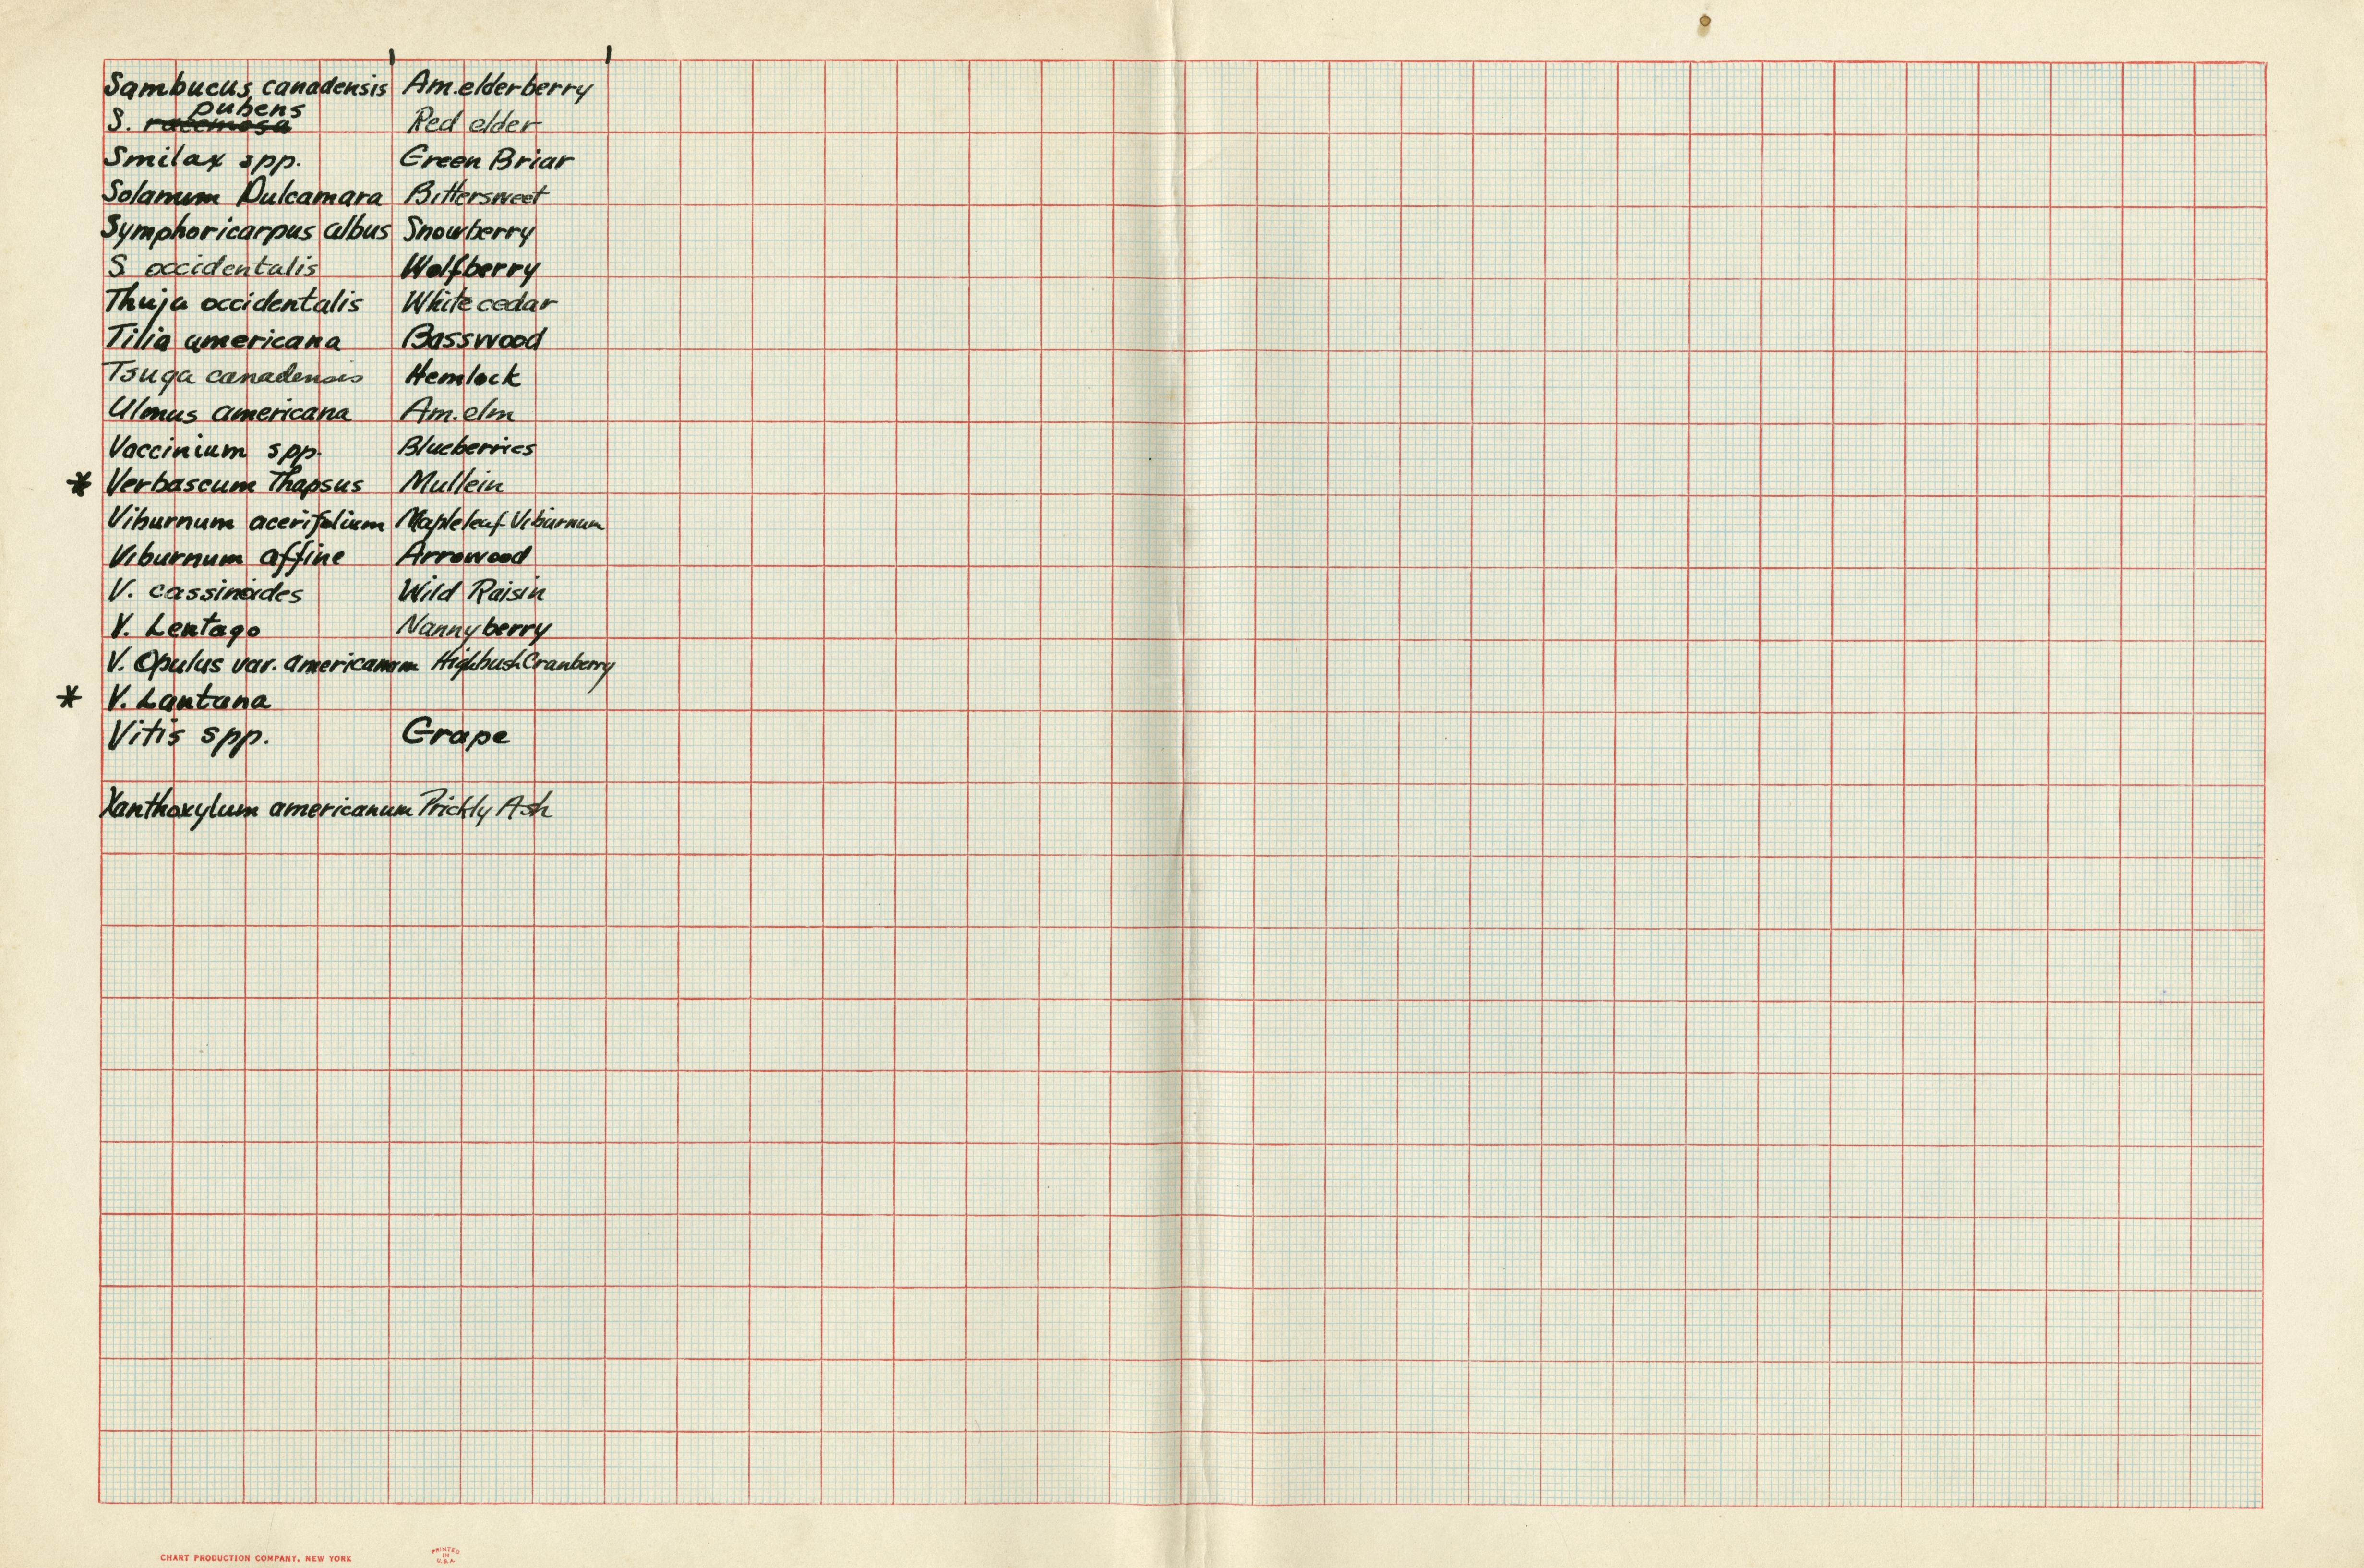 Sambucus canadensis Am. elderberry
pubens
S. racemosa Red elder
Smilax spp. Green Briar
Solanum Dulcamara Bittersweet
Symphoricarpus albus Snowberry
S occidentalis Wolfberry
Thuja occidentalis White cedar
Tilia americana Basswood
Tsuga canadensis Hemlock
Ulmus americana Am. elm
Vaccinium spp. Blueberries
* Verbascum Thapsus Mullein
Viburnum acerifolium Mapleleaf Viburnum
Viburnum affine Arrowood
V. cassinoides Wild Raisin
V. Lentago Nannyberry
V. Opulus var. americanum Highbush Cranberry
* V. Lantana
Vitis spp. Grape
Xanthoxylum americanum Prickly Ash
CHART PRODUCTION COMPANY, NEW YORK
PRINTED
IN
U.S.A.